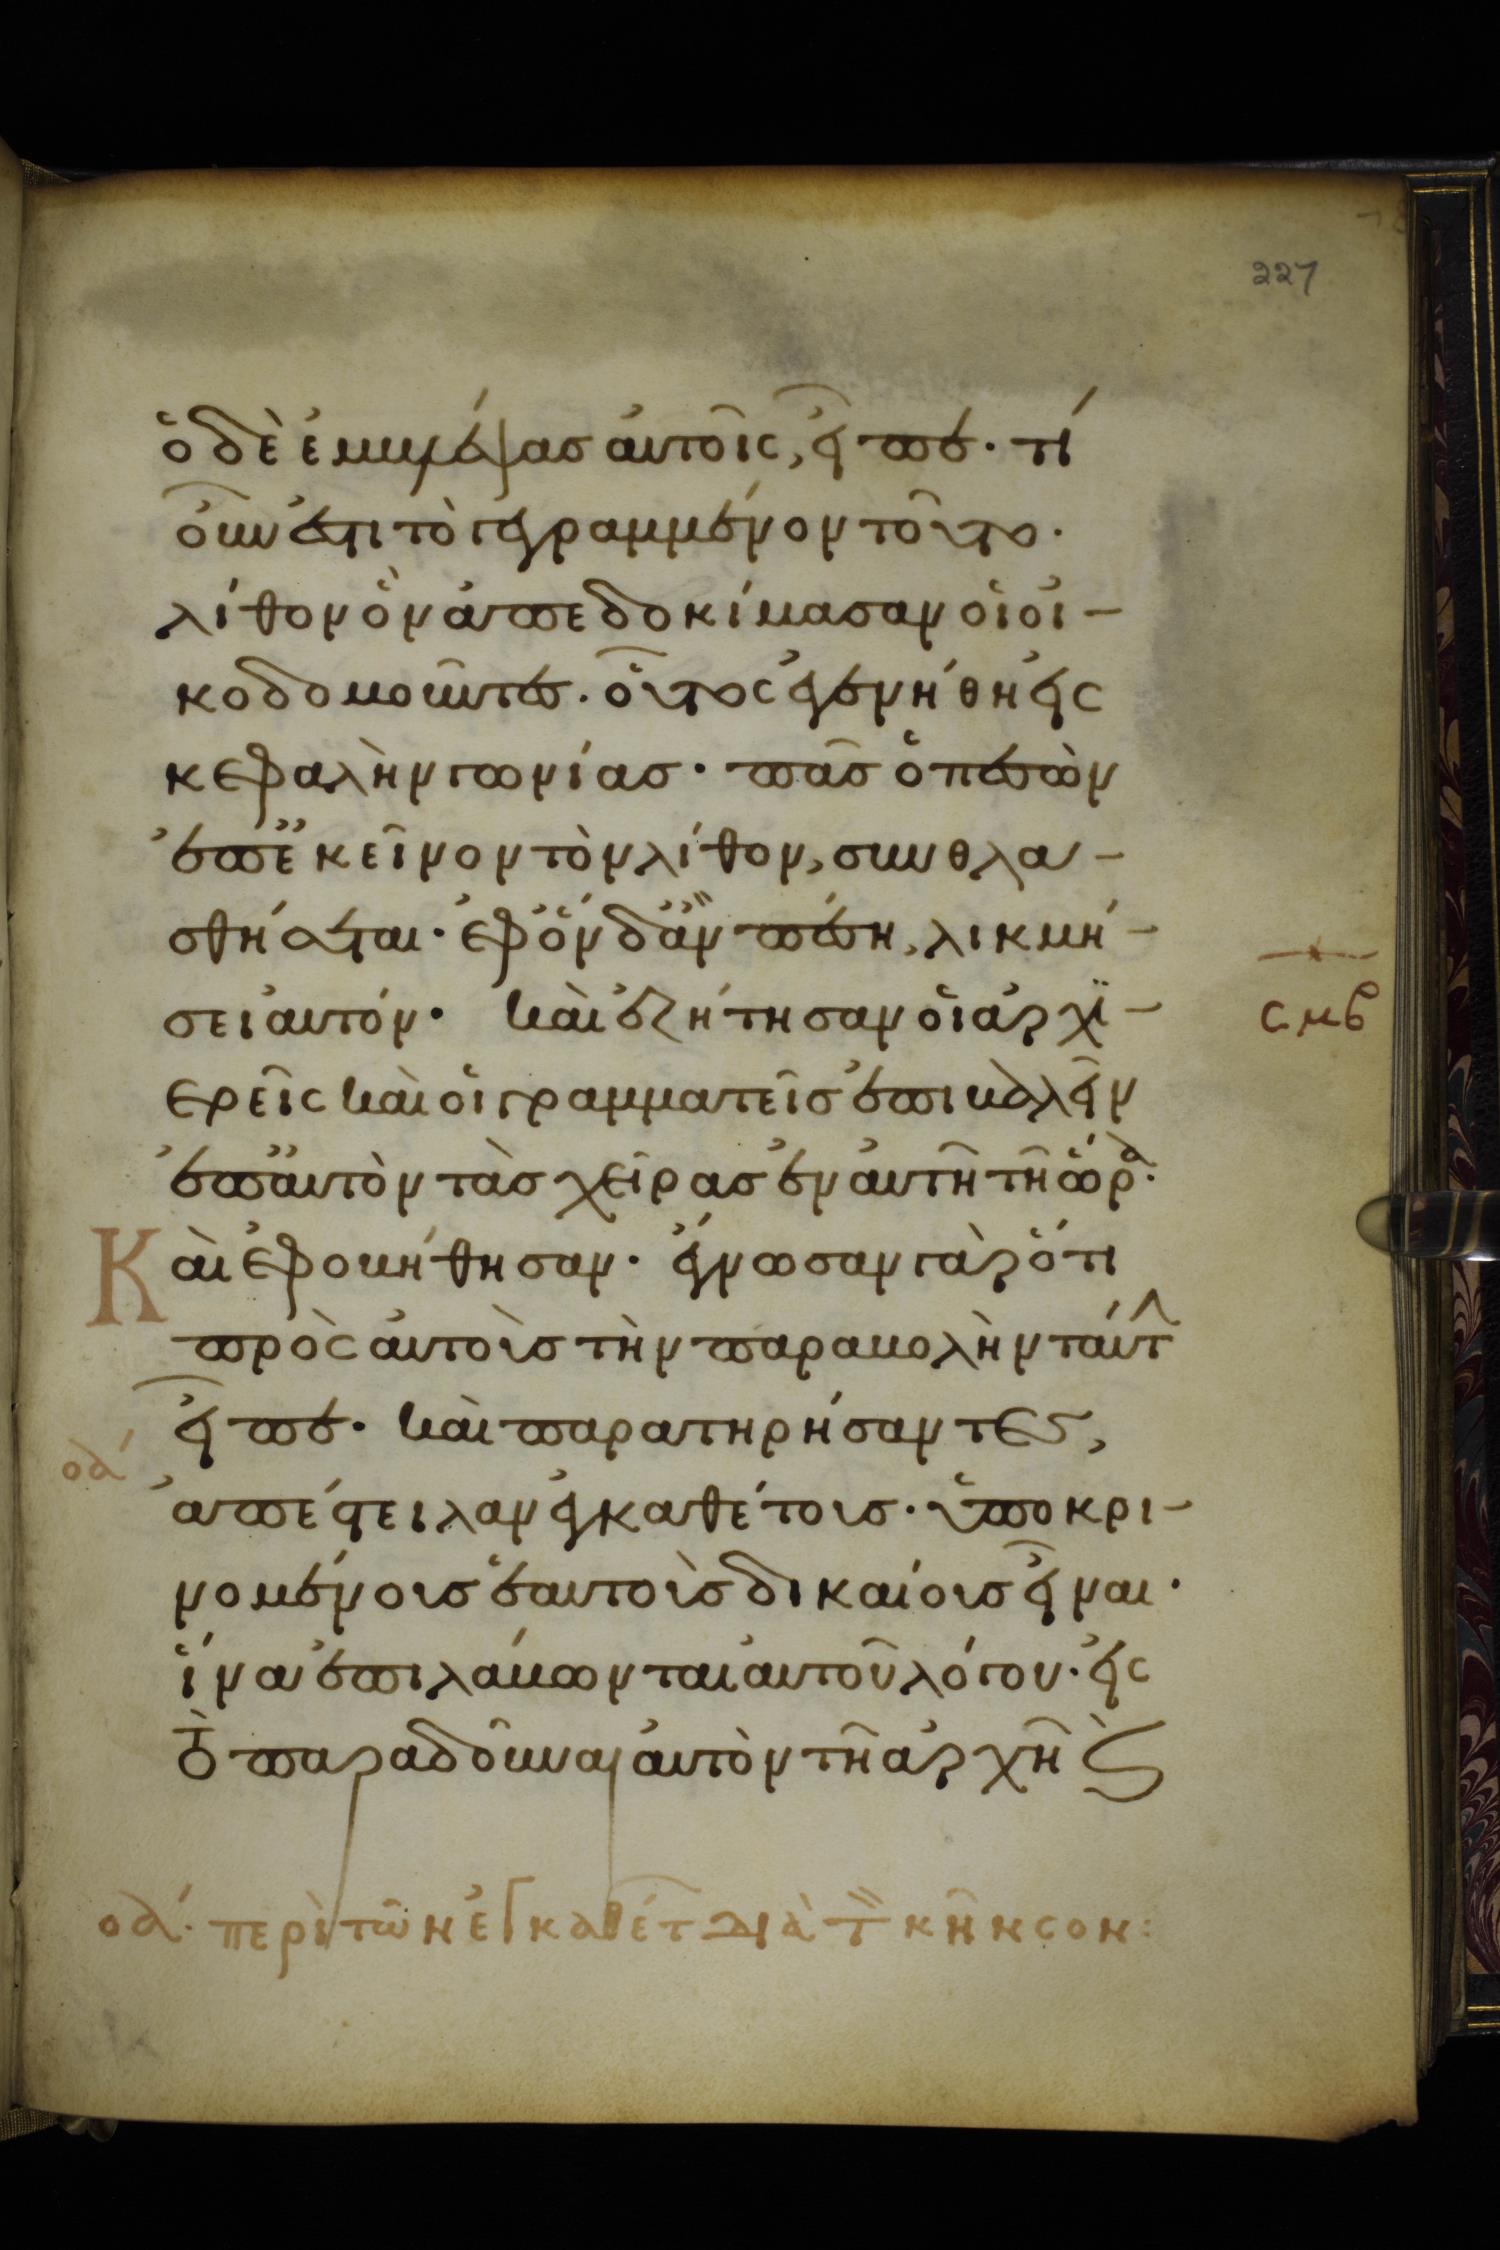 227
ὁ δὲ ἐμβλέψας αὐτοῖς, εἶπε· τί
οὖν ἐστι τὸ γεγραμμένον τοῦτο·
λίθον ὃν ἀπεδοκίμασαν οἱ οἰ–
κοδομοῦντες· οὗτος ἐγενήθη εἰς
κεφαλὴν γωνίας· πᾶς ὁ πεσὼν
ἐπ' ἐκεῖνον τὸν λίθον, συνθλα–
σθήσεται· ἐφ' ὃν δ' ἂν πέση, λικμή–
σει αὐτόν· καὶ ἐζήτησαν οἱ ἀρχϊ–
σμβ
ερεῖς καὶ οἱ γραμματεῖς ἐπιβαλεῖν
ἐπ' αὐτὸν τὰς χεῖρας ἐν αὐτῆ τῆ ὥρα·
Καὶ ἐφοβήθησαν· ἔγνωσαν γὰρ ὅτι
πρὸς αὐτοὺς τὴν παραβολὴν ταύτ
εἶπε· καὶ παρατηρήσαντες,
οα
ἀπέστειλαν ἐγκαθέτους· ὑποκρι–
νομένους ἑαυτοὺς δικαίους εἶναι·
ἵνα ἐπιλάβωνται αὐτοῦ λόγου· εἰς
τὸ παραδοῦναι αὐτὸν τῆ ἀρχῆ ϗ
οα· περὶ τῶν ἐγκαθέτ διὰ τ κῆνσον: